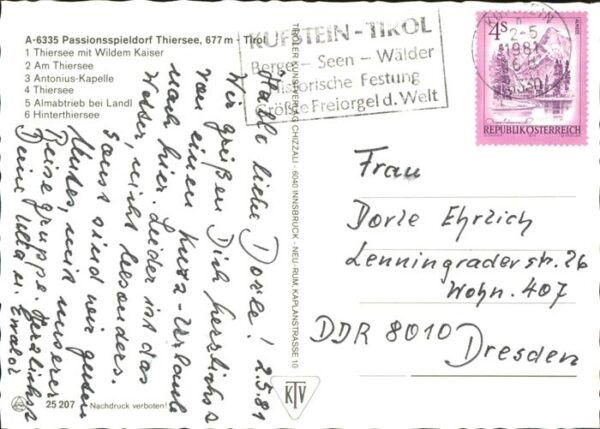 A-6335 Passionsspieldorf Thiersee, 677 m - Tirol
1 Thiersee mit Wildem Kaiser
2 Am Thiersee
3 Antonius-Kapelle
4 Thiersee
5 Almabtrieb bei Landl
6 Hinterthiersee
Hallo liebe Dorle! 2.5.81
Wir grüßen Dich herzlichst
von einem Kurz-Urlaub
nach hier. Leider ist das
Wetter nicht besonders.
Sonst sind wir guten
Mutes, mit unserer
Reisegruppe. Herzlichst
Deine Jutta u. Ewald
25 207 Nachdruck verboten!
TIROLER KUNSTVERLAG CHIZZALI - 6040 INNSBRUCK - NEU-RUM, KAPLANSTRASSE 10
KTV
KUFSTEIN - TIROL
Berge - Seen - Wälder
Historische Festung
Größte Freiorgel d. Welt
KUFSTEIN
2-5
1981
6320
4S
REPUBLIK ÖSTERREICH
Frau
Dorle Ehrlich
Lenningrader str. 26
Wohn. 407
DDR 8010
Dresden